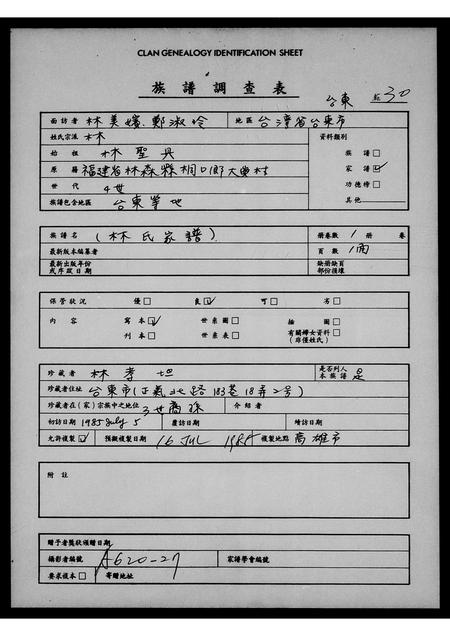 CLAN GENEALOGY IDENTIFICATION SHEET
族譜調查表
台東 30
面訪者 林美嬪、鄭淑玲 地區 台灣省台東市
姓氏宗派 林 資料類別
始祖 林聖丹 族譜□
原籍 福建省林森縣桐口鄉大樂村 家譜☑
世代 4世 功德榜□
族譜包含地區 台東等地 其他
族譜名 (林氏家譜) 册卷數 1 册 卷
最新版本編纂者 頁數
最新出版年份 缺册缺頁
或序跋日期 部份損壞
保管狀況 優□ 良☑ 可□ 劣□
內容 寫本☑ 世系圖□ 插圖□
刊本□ 世系表□ 有關婦女資料□
(非僅姓氏)
珍藏者 林孝坦 是否列入本族譜 是
珍藏者住址 台東市(正氣北路183巷18弄2號)
珍藏者在(家)宗族中之地位 3世裔孫 介紹者
初訪日期 1985 July 5 覆訪日期 續訪日期
允許複製☑ 預擬複製日期 16 JUL 複製地點 高雄市
附註
贈予者獎狀頒贈日期
攝影者編號 A620-27 家譜學會編號
要求複本□ 寄贈地址